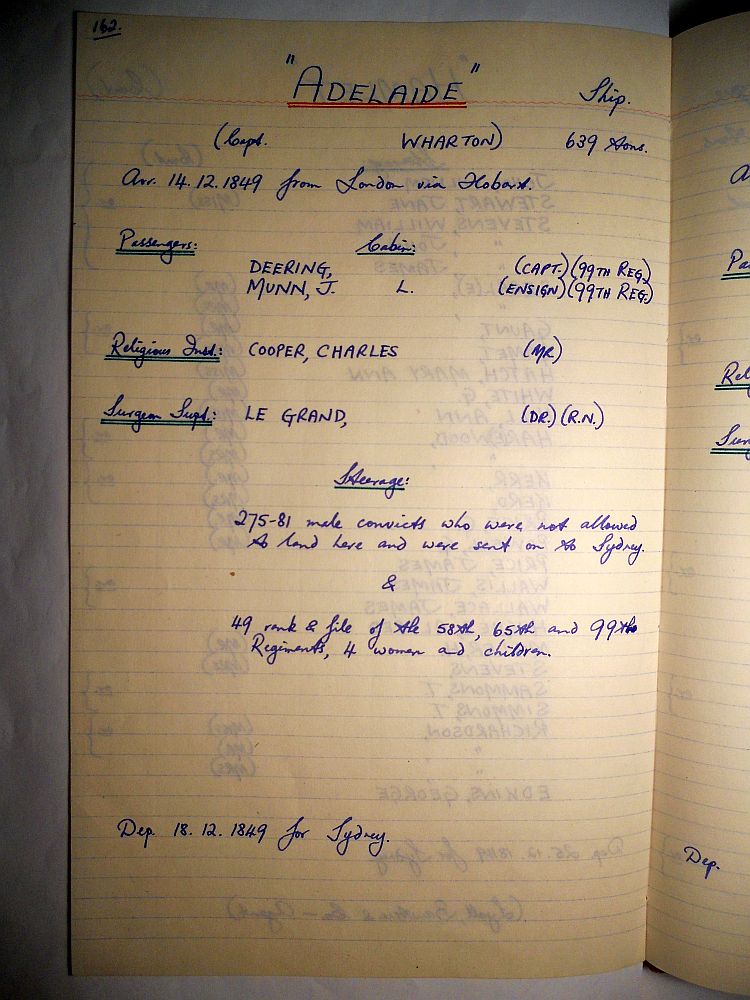 162.
"ADELAIDE" Ship.
(Capt. WHARTON) 639 tons.
Arr. 14.12.1849 from London via Hobart.
Passengers: Cabin:
DEERING, (CAPT.) (99TH REG.)
MUNN, J. L. (ENSIGN) (99TH REG.)
Religious Inst.: COOPER, CHARLES (MR)
Surgeon Supt.: LE GRAND, (DR.) (R.N.)
Steerage:
275-81 male convicts who were not allowed
to land here and were sent on to Sydney.
&
49 rank & file of the 58th, 65th and 99th
Regiments, 4 women and children.
Dep. 18.12.1849 for Sydney.
Dep.